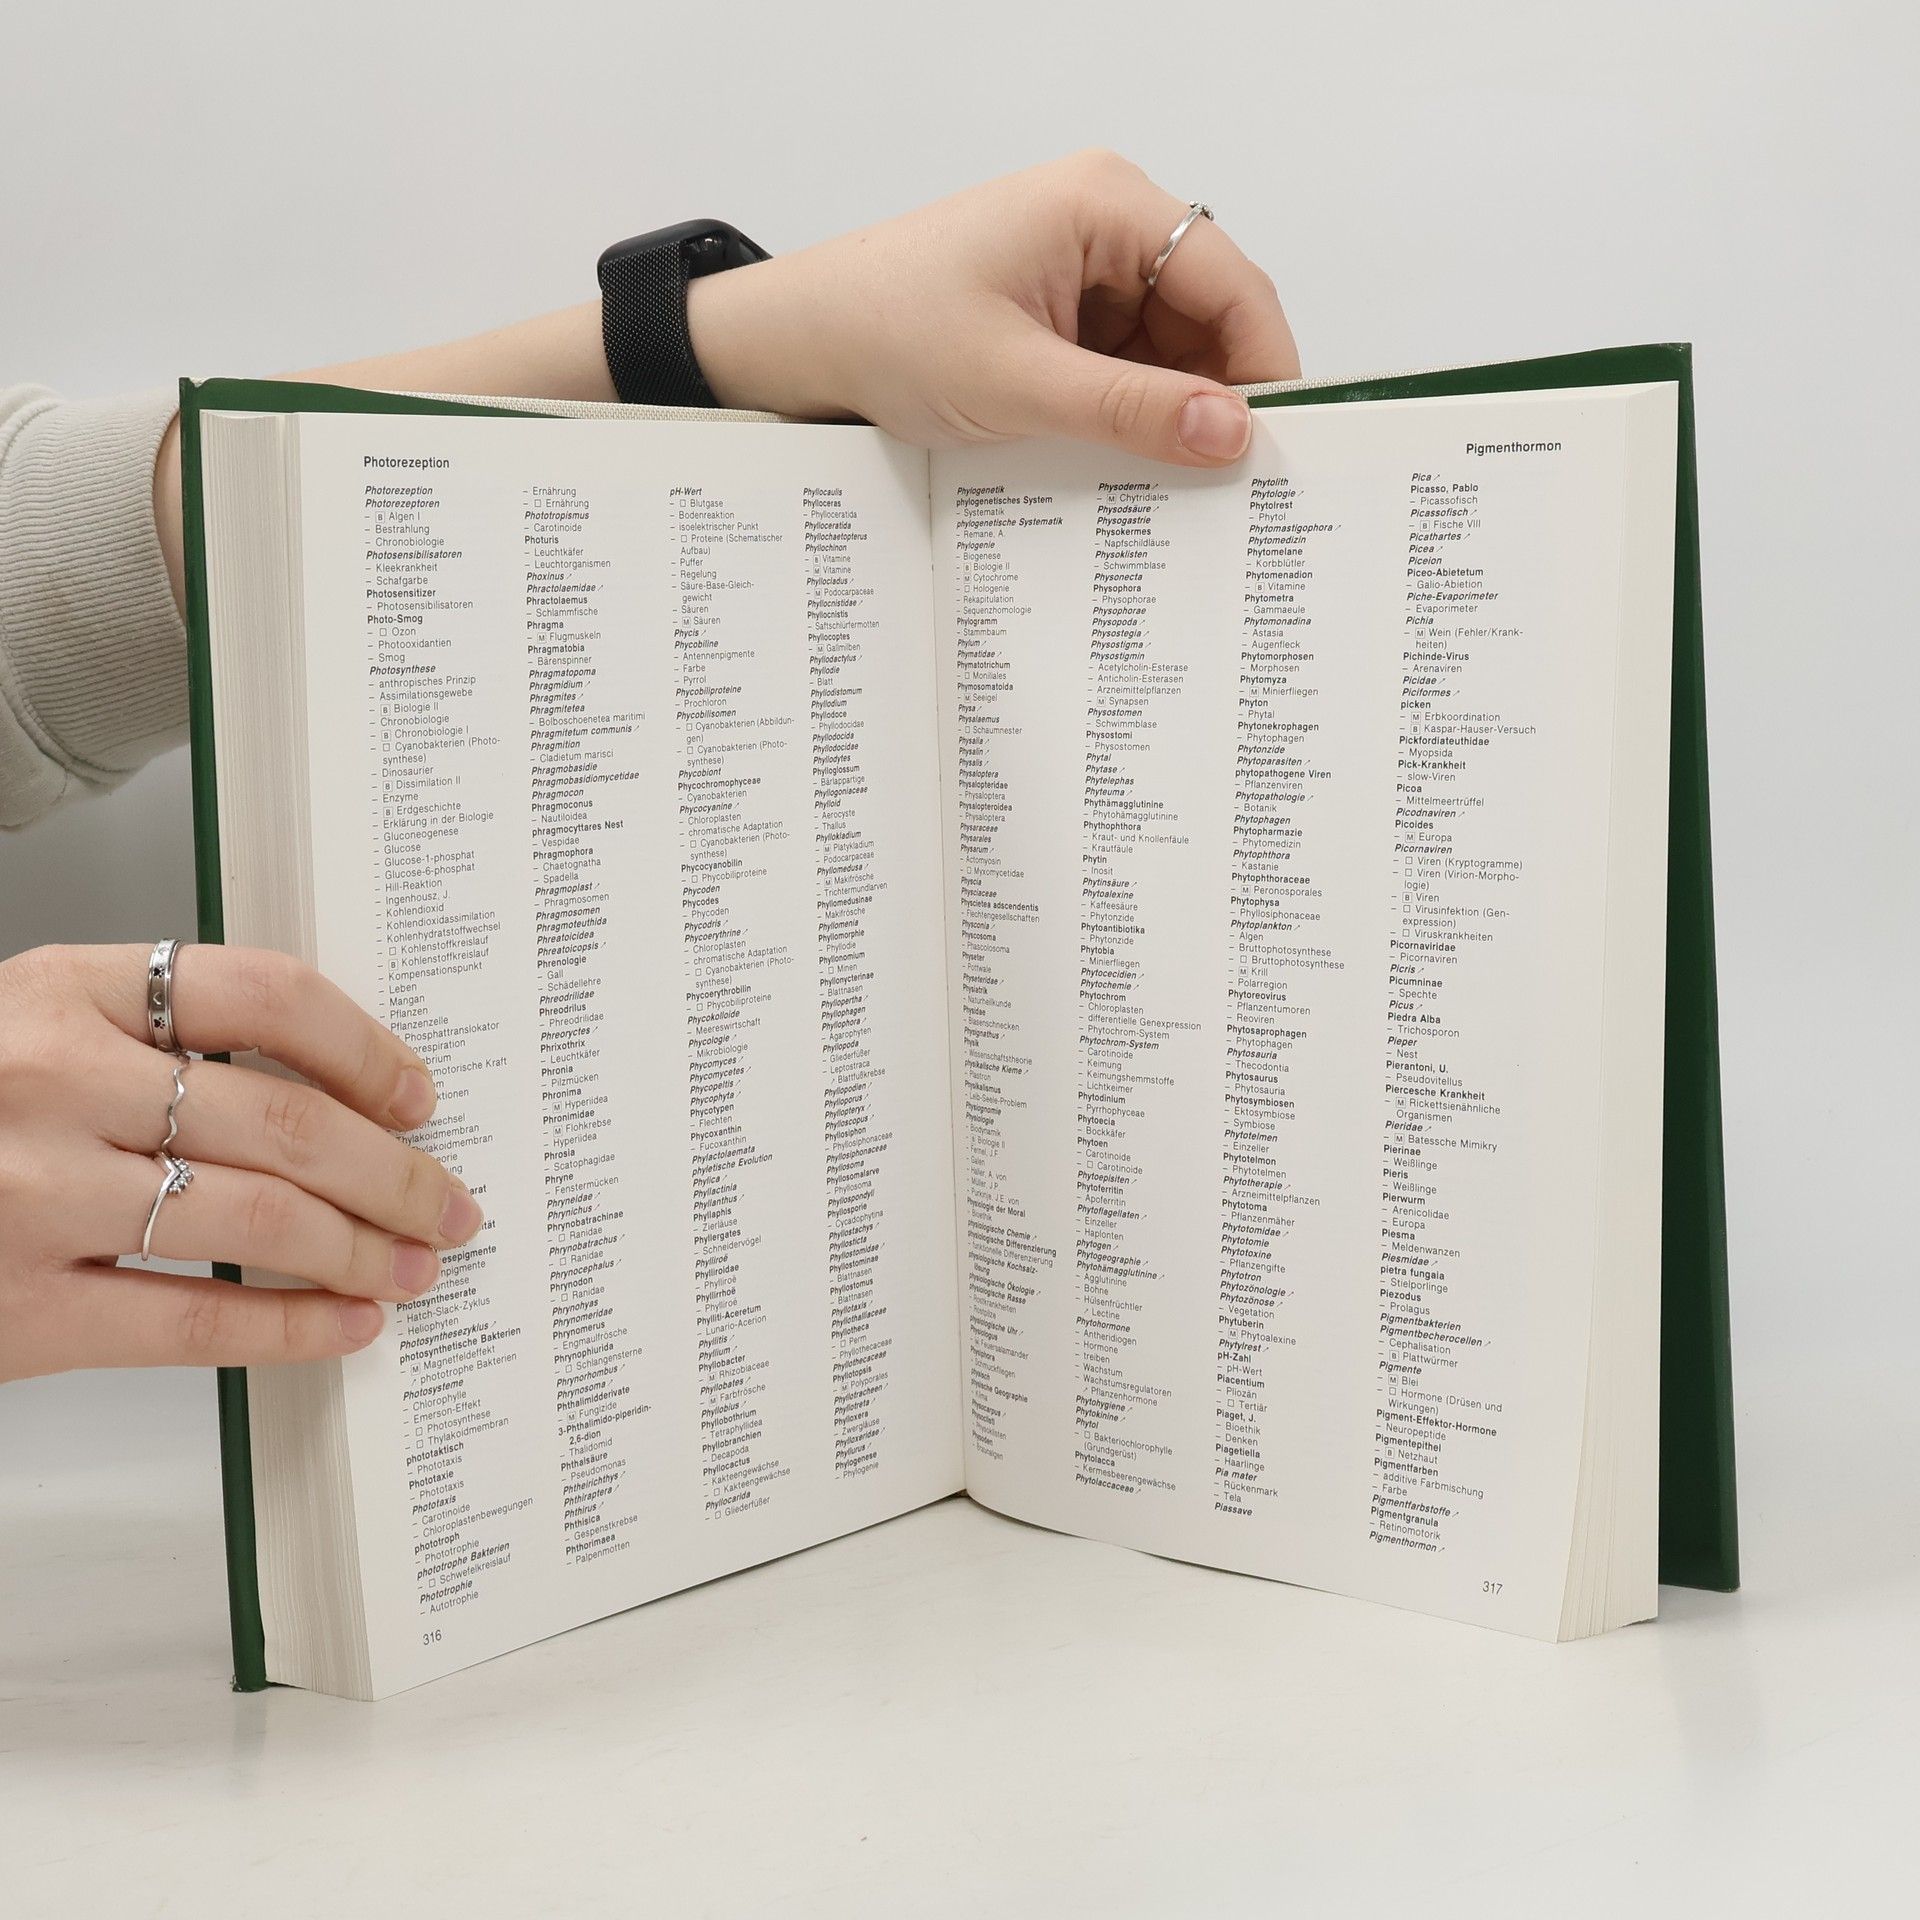 Photorezeption
Photorezeption
Photorezeptoren
– B Algen I
– Bestrahlung
– Chronobiologie
Photosensibilisatoren
– Kleekrankheit
– Schafgarbe
Photosensitizer
– Photosensibilisatoren
Photo-Smog
– □ Ozon
– Photooxidantien
– Smog
Photosynthese
– anthropisches Prinzip
– Assimilationsgewebe
– B Biologie II
– Chronobiologie
– B Chronobiologie I
– □ Cyanobakterien (Photo-
synthese)
– Dinosaurier
– B Dissimilation II
– Enzyme
– B Erdgeschichte
– Erklärung in der Biologie
– Gluconeogenese
– Glucose
– Glucose-1-phosphat
– Glucose-6-phosphat
– Hill-Reaktion
– Ingenhousz, J.
– Kohlendioxid
– Kohlendioxidassimilation
– Kohlenhydratstoffwechsel
– □ Kohlenstoffkreislauf
– B Kohlenstoffkreislauf
– Kompensationspunkt
– Leben
– Mangan
– Pflanzen
Pflanzenzelle
Phosphattranslokator
Photosyntheserate
– Hatch-Slack-Zyklus
– Heliophyten
Photosynthesezyklus ↗
photosynthetische Bakterien
– M Magnetfeldeffekt
↗ phototrophe Bakterien
Photosysteme
– Chlorophylle
– Emerson-Effekt
– □ Photosynthese
– □ Thylakoidmembran
phototaktisch
– Phototaxis
Phototaxie
– Phototaxis
Phototaxis
– Carotinoide
– Chloroplastenbewegungen
phototroph
– Phototrophie
phototrophe Bakterien
– □ Schwefelkreislauf
Phototrophie
– Autotrophie
– Ernährung
– □ Ernährung
Phototropismus
– Carotinoide
Photuris
– Leuchtkäfer
– Leuchtorganismen
Phoxinus ↗
Phractolaemidae ↗
Phractolaemus
– Schlammfische
Phragma
– M Flugmuskeln
Phragmatobia
– Bärenspinner
Phragmatopoma
Phragmidium ↗
Phragmites ↗
Phragmitetea
– Bolboschoenetea maritimi
Phragmitetum communis ↗
Phragmition
– Cladietum marisci
Phragmobasidie
Phragmobasidiomycetidae
Phragmocon
Phragmoconus
– Nautiloidea
phragmocyttares Nest
– Vespidae
Phragmophora
– Chaetognatha
– Spadella
Phragmoplast ↗
– Phragmosomen
Phragmosomen
Phragmoteuthida
Phreatoicidea
Phreatoicopsis ↗
Phrenologie
– Gall
– Schädellehre
Phreodrilidae
Phreodrilus
– Phreodrilidae
Phreoryctes ↗
Phrixothrix
– Leuchtkäfer
Phronia
– Pilzmücken
Phronima
– M Hyperiidea
Phronimidae
– M Flohkrebse
– Hyperiidea
Phrosia
– Scatophagidae
Phryne
– Fenstermücken
Phryneidae ↗
Phrynichus ↗
Phrynobatrachinae
– □ Ranidae
Phrynobatrachus ↗
– □ Ranidae
Phrynocephalus ↗
Phrynodon
– □ Ranidae
Phrynohyas
Phrynomeridae
Phrynomerus
– Engmaulfrösche
Phrynophiurida
– □ Schlangensterne
Phrynorhombus ↗
Phrynosoma ↗
Phthalimidderivate
– M Fungizide
3-Phthalimido-piperidin-
2,6-dion
– Thalidomid
Phthalsäure
– Pseudomonas
Phtheirichthys ↗
Phthiraptera ↗
Phthirus ↗
Phthisica
– Gespenstkrebse
Phthorimaea
– Palpenmotten
pH-Wert
– □ Blutgase
– Bodenreaktion
– isoelektrischer Punkt
– □ Proteine (Schematischer
Aufbau)
– Puffer
– Regelung
– Säure-Base-Gleich-
gewicht
– Säuren
– M Säuren
Phycis ↗
Phycobiline
– Antennenpigmente
– Farbe
– Pyrrol
Phycobiliproteine
– Prochloron
Phycobilisomen
– □ Cyanobakterien (Abbildun-
gen)
– □ Cyanobakterien (Photo-
synthese)
Phycobiont
Phycochromophyceae
– Cyanobakterien
Phycocyanine ↗
– Chloroplasten
– chromatische Adaptation
– □ Cyanobakterien (Photo-
synthese)
Phycocyanobilin
– □ Phycobiliproteine
Phycoden
Phycodes
– Phycoden
Phycodris ↗
Phycoerythrine ↗
– Chloroplasten
– chromatische Adaptation
– □ Cyanobakterien (Photo-
synthese)
Phycoerythrobilin
– □ Phycobiliproteine
Phycokolloide
– Meereswirtschaft
Phycologie ↗
– Mikrobiologie
Phycomyces ↗
Phycomycetes ↗
Phycopeltis ↗
Phycophyta ↗
Phycotypen
– Flechten
Phycoxanthin
– Fucoxanthin
Phylactolaemata
phyletische Evolution
Phylica ↗
Phyllactinia
Phyllanthus ↗
Phyllaphis
– Zierläuse
Phyllergates
– Schneidervögel
Phylliroë
Phylliroidae
– Phylliroë
Phyllirrhoë
– Phylliroë
Phylliti-Aceretum
– Lunario-Acerion
Phyllitis ↗
Phyllium ↗
Phyllobacter
– M Rhizobiaceae
Phyllobates ↗
– M Farbfrösche
Phyllobius ↗
Phyllobothrium
– Tetraphyllidea
Phyllobranchien
– Decapoda
Phyllocactus
– Kakteengewächse
– □ Kakteengewächse
Phyllocarida
– □ Gliederfüßer
Phyllocaulis
Phylloceras
– Phylloceratida
Phylloceratida
Phyllochaetopterus
Phyllochinon
– B Vitamine
– M Vitamine
Phyllocladus ↗
– M Podocarpaceae
Phyllocnistidae ↗
Phyllocnistis
– Saftschlürfermotten
Phyllocoptes
– M Gallmilben
Phyllodactylus ↗
Phyllodie
– Blatt
Phyllodistomum
Phyllodium
Phyllodoce
– Phyllodocidae
Phyllodocida
Phyllodocidae
Phyllodytes
Phylloglossum
– Bärlappartige
Phyllogoniaceae
Phylloid
– Aerocyste
– Thallus
Phyllokladium
– M Platykladium
– Podocarpaceae
Phyllomedusa ↗
– M Makifrösche
– Trichtermundlarven
Phyllomedusinae
– Makifrösche
Phyllomenia
Phyllomorphie
– Phyllodie
Phyllonomium
– □ Minen
Phyllonycterinae
– Blattnasen
Phyllopertha ↗
Phyllophagen
Phyllophora ↗
– Agarophyten
Phyllopoda
– Gliederfüßer
– Leptostraca
↗ Blattfußkrebse
Phyllopodien ↗
Phylloporus ↗
Phyllopteryx ↗
Phylloscopus ↗
Phyllosiphon
– Phyllosiphonaceae
Phyllosiphonaceae
Phyllosoma
Phyllosomalarve
– Phyllosoma
Phyllospondyli
Phyllosporie
– Cycadophytina
Phyllostachys ↗
Phyllosticta
Phyllostomidae ↗
Phyllostominae
– Blattnasen
Phyllostomus
– Blattnasen
Phyllotaxis ↗
Phyllothalliaceae
Phyllotheca
– □ Perm
– Phyllothecaceae
Phyllothecaceae
Phyllotopsis
– M Polyporales
Phyllotracheen ↗
Phyllotreta ↗
Phylloxera
– Zwergläuse
Phylloxeridae ↗
Phyllurus ↗
Phylogenese
– Phylogenie
316
Pigmenthormon
Phylogenetik
phylogenetisches System
– Systematik
phylogenetische Systematik
– Remane, A.
Phylogenie
– Biogenese
– B Biologie II
– M Cytochrome
– □ Hologenie
– Rekapitulation
– Sequenzhomologie
Phylogramm
– Stammbaum
Phylum ↗
Phymatidae ↗
Phymatotrichum
– □ Moniliales
Phymosomatoida
– M Seeigel
Physa ↗
Physalaemus
– □ Schaumnester
Physalia ↗
Physalin ↗
Physalis ↗
Physaloptera
Physalopteridae
– Physaloptera
Physalopteroidea
– Physaloptera
Physaraceae
Physarales
Physarum ↗
– Actomyosin
– □ Myxomycetidae
Physcia
Physciaceae
Physcietea adscendentis
– Flechtengesellschaften
Physconia ↗
Physcosoma
– Phascolosoma
Physeter
– Pottwale
Physeteridae ↗
Physiatrik
– Naturheilkunde
Physidae
– Blasenschnecken
Physignathus ↗
Physik
– Wissenschaftstheorie
physikalische Kieme ↗
– Plastron
Physikalismus
– Leib-Seele-Problem
Physiognomie
Physiologie
– Biodynamik
– B Biologie II
– Fernel, J.F.
– Galen
– Haller, A. von
– Müller, J.P.
– Purkinje, J.E. von
Physiologie der Moral
– Bioethik
physiologische Chemie ↗
physiologische Differenzierung
– funktionelle Differenzierung
physiologische Kochsalz-
lösung
physiologische Ökologie ↗
physiologische Rasse
– Rostkrankheiten
– Rostpilze
physiologische Uhr ↗
Physiologus
– M Feuersalamander
Physiphora
– Schmuckfliegen
physisch
physische Geographie
– Klima
Physocarpus ↗
Physoclisti
– Physoklisten
Physoden
– Braunalgen
Physoderma ↗
– M Chytridiales
Physodsäure ↗
Physogastrie
Physokermes
– Napfschildläuse
Physoklisten
– Schwimmblase
Physonecta
Physophora
– Physophorae
Physophorae
Physopoda ↗
Physostegia ↗
Physostigma ↗
Physostigmin
– Acetylcholin-Esterase
– Anticholin-Esterasen
– Arzneimittelpflanzen
– M Synapsen
Physostomen
– Schwimmblase
Physostomi
– Physostomen
Phytal
Phytase ↗
Phytelephas
Phyteuma ↗
Phythämagglutinine
– Phytohämagglutinine
Phythophthora
– Kraut- und Knollenfäule
– Krautfäule
Phytin
– Inosit
Phytinsäure ↗
Phytoalexine
– Kaffeesäure
– Phytonzide
Phytoantibiotika
– Phytonzide
Phytobia
– Minierfliegen
Phytocecidien ↗
Phytochemie ↗
Phytochrom
– Chloroplasten
– differentielle Genexpression
– Phytochrom-System
Phytochrom-System
– Carotinoide
– Keimung
– Keimungshemmstoffe
– Lichtkeimer
Phytodinium
– Pyrrhophyceae
Phytoecia
– Bockkäfer
Phytoen
– Carotinoide
– □ Carotinoide
Phytoepisiten ↗
Phytoferritin
– Apoferritin
Phytoflagellaten ↗
– Einzeller
– Haplonten
phytogen ↗
Phytogeographie ↗
Phytohämagglutinine ↗
– Agglutinine
– Bohne
– Hülsenfrüchtler
↗ Lectine
Phytohormone
– Antheridiogen
– Hormone
– treiben
– Wachstum
– Wachstumsregulatoren
↗ Pflanzenhormone
Phytohygiene ↗
Phytokinine ↗
Phytol
– □ Bakteriochlorophylle
(Grundgerüst)
Phytolacca
– Kermesbeerengewächse
Phytolaccaceae ↗
Phytolith
Phytologie ↗
Phytolrest
– Phytol
Phytomastigophora ↗
Phytomedizin
Phytomelane
– Korbblütler
Phytomenadion
– B Vitamine
Phytometra
– Gammaeule
Phytomonadina
– Astasia
– Augenfleck
Phytomorphosen
– Morphosen
Phytomyza
– M Minierfliegen
Phyton
– Phytal
Phytonekrophagen
– Phytophagen
Phytonzide
Phytoparasiten ↗
phytopathogene Viren
– Pflanzenviren
Phytopathologie ↗
– Botanik
Phytophagen
Phytopharmazie
– Phytomedizin
Phytophthora
– Kastanie
Phytophthoraceae
– M Peronosporales
Phytophysa
– Phyllosiphonaceae
Phytoplankton ↗
– Algen
– Bruttophotosynthese
– □ Bruttophotosynthese
– M Krill
– Polarregion
Phytoreovirus
– Pflanzentumoren
– Reoviren
Phytosaprophagen
– Phytophagen
Phytosauria
– Thecodontia
Phytosaurus
– Phytosauria
Phytosymbiosen
– Ektosymbiose
– Symbiose
Phytotelmen
– Einzeller
Phytotelmon
– Phytotelmen
Phytotherapie ↗
– Arzneimittelpflanzen
Phytotoma
– Pflanzenmäher
Phytotomidae ↗
Phytotomie
Phytotoxine
– Pflanzengifte
Phytotron
Phytozönologie ↗
Phytozönose ↗
– Vegetation
Phytuberin
– M Phytoalexine
Phytylrest ↗
pH-Zahl
– pH-Wert
Piacentium
– Pliozän
– □ Tertiär
Piaget, J.
– Bioethik
– Denken
Piagetiella
– Haarlinge
Pia mater
– Rückenmark
– Tela
Piassave
Pica ↗
Picasso, Pablo
– Picassofisch
Picassofisch ↗
– B Fische VIII
Picathartes ↗
Picea ↗
Piceion
Piceo-Abietetum
– Galio-Abietion
Piche-Evaporimeter
– Evaporimeter
Pichia
– M Wein (Fehler/Krank-
heiten)
Pichinde-Virus
– Arenaviren
Picidae ↗
Piciformes ↗
picken
– M Erbkoordination
– B Kaspar-Hauser-Versuch
Pickfordiateuthidae
– Myopsida
Pick-Krankheit
– slow-Viren
Picoa
– Mittelmeertrüffel
Picodnaviren ↗
Picoides
– M Europa
Picornaviren
– □ Viren (Kryptogramme)
– □ Viren (Virion-Morpho-
logie)
– B Viren
– □ Virusinfektion (Gen-
expression)
– □ Viruskrankheiten
Picornaviridae
– Picornaviren
Picris ↗
Picumninae
– Spechte
Picus ↗
Piedra Alba
– Trichosporon
Pieper
– Nest
Pierantoni, U.
– Pseudovitellus
Piercesche Krankheit
– M Rickettsienähnliche
Organismen
Pieridae ↗
– M Batessche Mimikry
Pierinae
– Weißlinge
Pieris
– Weißlinge
Pierwurm
– Arenicolidae
– Europa
Piesma
– Meldenwanzen
Piesmidae ↗
pietra fungaia
– Stielporlinge
Piezodus
– Prolagus
Pigmentbakterien
Pigmentbecherocellen ↗
– Cephalisation
– B Plattwürmer
Pigmente
– M Blei
– □ Hormone (Drüsen und
Wirkungen)
Pigment-Effektor-Hormone
– Neuropeptide
Pigmentepithel
– B Netzhaut
Pigmentfarben
– additive Farbmischung
– Farbe
Pigmentfarbstoffe ↗
Pigmentgranula
– Retinomotorik
Pigmenthormon ↗
317